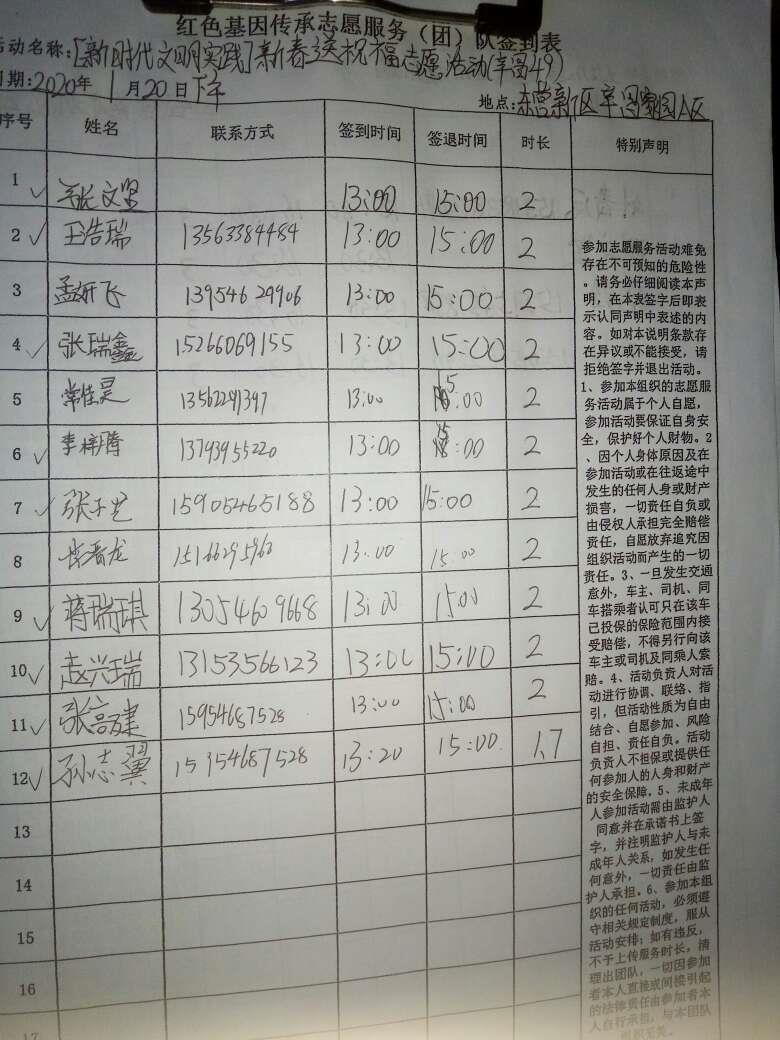 红色基因传承志愿服务（团）队签到表
活动名称:[新时代文明实践]新春送祝福志愿活动(辛富49)
日期:2020年1月20日下午
地点:东营新区辛富家园A区
序号 姓名 联系方式 签到时间 签退时间 时长 特别声明
1 张文 13:00 15:00 2
2 王浩瑞 13563384484 13:00 15:00 2
3 孟妍飞 13954629906 13:00 15:00 2
4 张瑞鑫 15266069155 13:00 15:00 2
5 常佳昊 13562291397 13:00 15:00 2
6 李梓腾 13793955220 13:00 15:00 2
7 张子艺 15905465188 13:00 15:00 2
8 晋龙 15166295960 13:00 15:00 2
9 蒋瑞琪 13054609668 13:00 15:00 2
10 赵兴瑞 13153566123 13:00 15:00 2
11 张高健 15954687528 13:00 15:00 2
12 孙志翼 15954687528 13:20 15:00 1.7
13
14
15
16
17
参加志愿服务活动难免
存在不可预知的危险性
。请务必仔细阅读本声
明，在本表签字后即表
示认同声明中表述的内
容。如对本说明条款存
在异议或不能接受，请
拒绝签字并退出活动。
1、参加本组织的志愿服
务活动属于个人自愿，
参加活动要保证自身安
全，保护好个人财物。2
、因个人身体原因及在
参加活动或在往返途中
发生的任何人身或财产
损害，一切责任自负或
由侵权人承担完全赔偿
责任，自愿放弃追究因
组织活动而产生的一切
责任。3、一旦发生交通
意外，车主、司机、同
车搭乘者认可只在该车
己投保的保险范围内接
受赔偿，不得另行向该
车主或司机及同乘人索
赔。4、活动负责人对活
动进行协调、联络、指
引，但活动性质为自由
结合、自愿参加、风险
自担、责任自负。活动
负责人不担保或提供任
何参加人的人身和财产
的安全保障。5、未成年
人参加活动需由监护人
同意并在承诺书上签
字，并注明监护人与未
成年人关系，如发生任
何意外，一切责任由监
护人承担。6、参加本组
织的任何活动，必须遵
守相关规定制度，服从
活动安排；如有违反，
不予上传服务时长，清
理出团队，一切因参加
者本人直接或间接引起
的法律责任由参加者本
人自行承担，与本团队